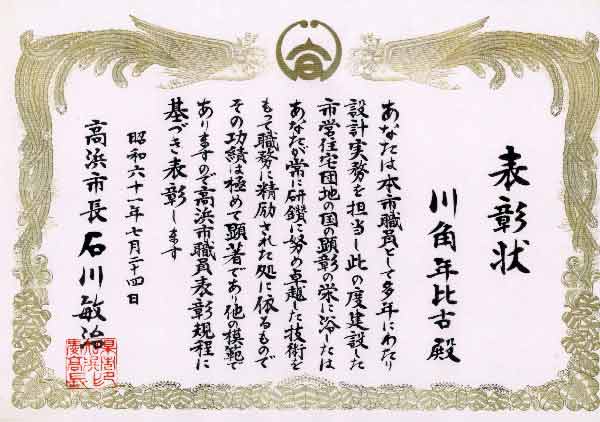 表彰状
川角年比古殿
あなたは本市職員として多年にわたり
設計実務を担当し此の度建設した
市営住宅団地の国の顕彰の栄に浴したは
あなたが常に研鑽に努め卓越した技術を
もって職務に精励された処に依るもので
その功績は極めて顕著であり他の模範で
ありますので高浜市職員表彰規程に
基づき表彰します
昭和六十一年七月二十四日
高浜市長 石川敏治